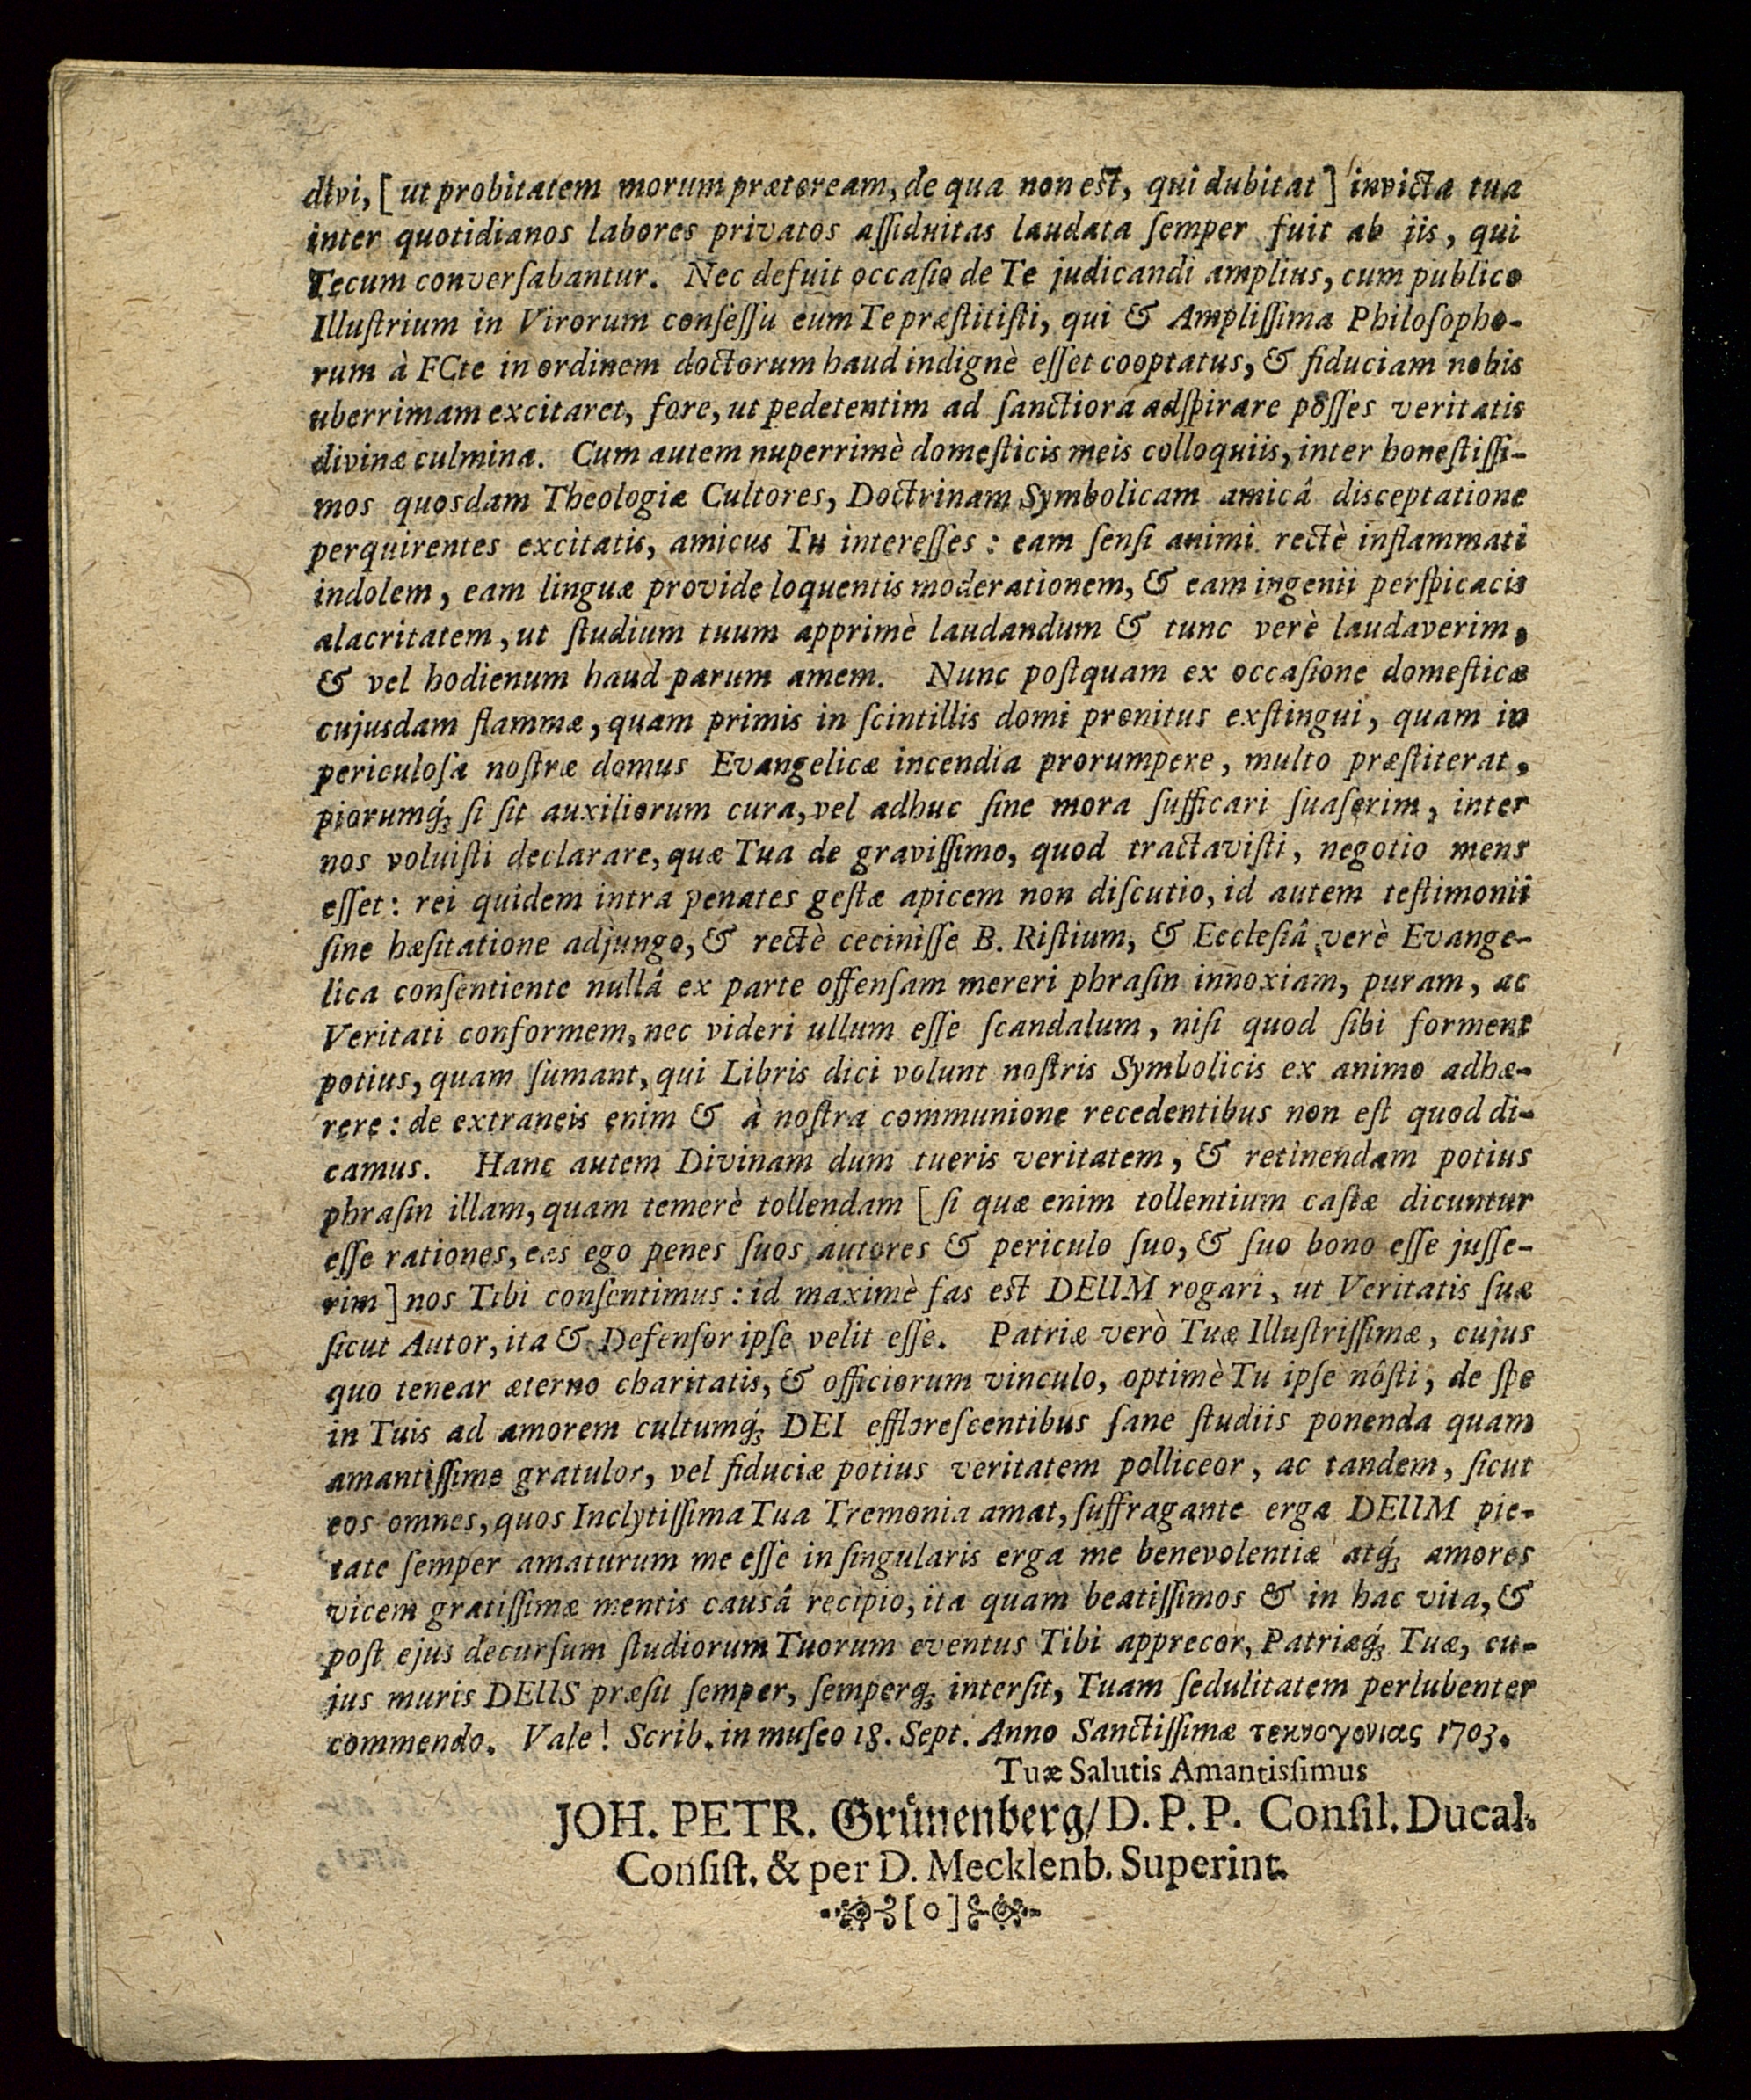 divi, [ ut probitatem morum prætoream, de qua non est, qui dubitat ] invicta tua
inter quotidianos labores privatos aſſiduitas laudata ſemper fuit ab iis, qui
Tecum converſabantur. Nec defuit occaſio de Te judicandi amplius, cum publico
Illuſtrium in Virorum conſeſſu eum Te præſtitiſti, qui & Ampliſſima Philoſopho-
rum à FCte in ordinem doctorum haud indignè eſſet cooptatus, & fiduciam nobis
uberrimam excitaret, fore, ut pedetentim ad ſanctiora adſpirare poſſes veritatis
divinæ culmina. Cum autem nuperrimè domeſticis meis colloquiis, inter honeſtiſſi-
mos quosdam Theologiæ Cultores, Doctrinam Symbolicam amicâ disceptatione
perquirentes excitatis, amicus Tu intereſſes : eam ſenſi animi rectè inflammati
indolem, eam linguæ provide loquentis moderationem, & eam ingenii perſpicacis
alacritatem, ut ſtudium tuum apprimè laudandum & tunc verè laudaverim,
& vel hodienum haud parum amem. Nunc poſtquam ex occaſione domeſticæ
cujusdam flammæ, quam primis in ſcintillis domi pronitus exſtingui, quam in
periculoſa noſtræ domus Evangelicæ incendia prorumpere, multo præſtiterat,
piorumq́ꝫ ſi ſit auxiliorum cura, vel adhuc ſine mora ſufficari ſuaſerim, inter
nos voluiſti declarare, quæ Tua de graviſſimo, quod tractaviſti, negotio mens
eſſet : rei quidem intra penates geſtæ apicem non diſcutio, id autem teſtimonii
ſine hæſitatione adjungo, & rectè ceciniſſe B. Riſtium, & Eccleſiâ verè Evange-
lica conſentiente nullâ ex parte offenſam mereri phraſin innoxiam, puram, ac
Veritati conformem, nec videri ullum eſſe ſcandalum, niſi quod ſibi forment
potius, quam ſumant, qui Libris dici volunt noſtris Symbolicis ex animo adhæ-
rere : de extraneis enim & à noſtra communione recedentibus non eſt quod di-
camus. Hanc autem Divinam dum tueris veritatem, & retinendam potius
phraſin illam, quam temerè tollendam [ ſi quæ enim tollentium caſtæ dicuntur
eſſe rationes, eas ego penes ſuos autores & periculo ſuo, & ſuo bono eſſe juſſe-
rim ] nos Tibi conſentimus : id maximè fas est DEUM rogari, ut Veritatis ſuæ
ſicut Autor, ita & Defenſor ipſe velit eſſe. Patriæ verò Tuæ Illuſtriſſimæ, cujus
quo tenear æterno charitatis, & officiorum vinculo, optimè Tu ipſe nôſti, de ſpe
in Tuis ad amorem cultumq́ꝫ DEI effloreſcentibus ſane ſtudiis ponenda quam
amantiſſime gratulor, vel fiduciæ potius veritatem polliceor, ac tandem, ſicut
eos omnes, quos Inclytiſſima Tua Tremonia amat, ſuffragante erga DEUM pie-
tate ſemper amaturum me eſſe in ſingularis erga me benevolentiæ atq́ꝫ amores
vicem gratiſſimæ mentis causâ recipio, ita quam beatiſſimos & in hac vita, &
poſt ejus decurſum ſtudiorum Tuorum eventus Tibi apprecor, Patriæq́ꝫ Tuæ, cu-
jus muris DEUS præſit ſemper, ſemperqꝫ interſit, Tuam ſedulitatem perlubenter
commendo. Vale ! Scrib. in muſeo 18. Sept. Anno Sanctiſſimæ τεκνογονιας 1703.
Tuæ Salutis Amantisſimus
JOH. PETR. Grünenberg/ D. P. P. Conſil. Ducal.
Conſiſt. & per D. Mecklenb. Superint.
[ o ]